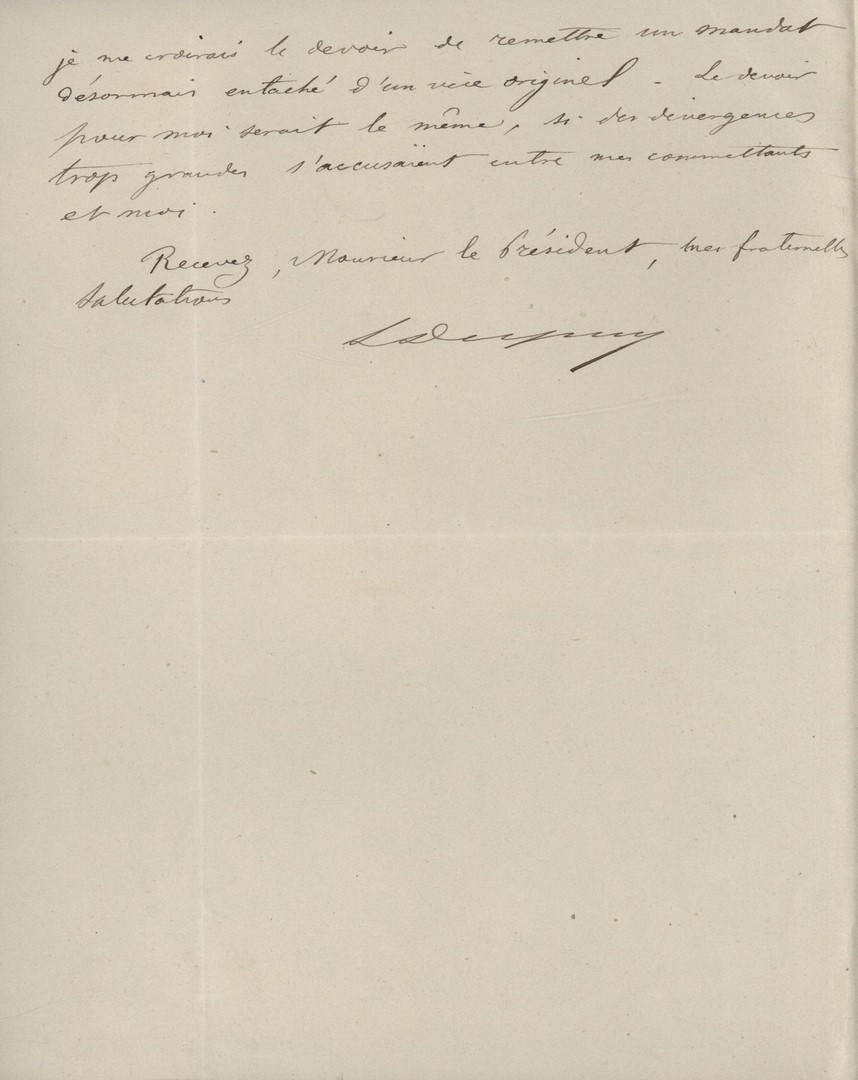 je me croirais le devoir de remettre un mandat
désormais entaché d'un vice originel - Le devoir
pour moi serait le même, si des divergences
trop grandes s'accusaient entre mes commettants
et moi.
Recevez, Monsieur le Président, mes fraternelles
salutations
LDupuy